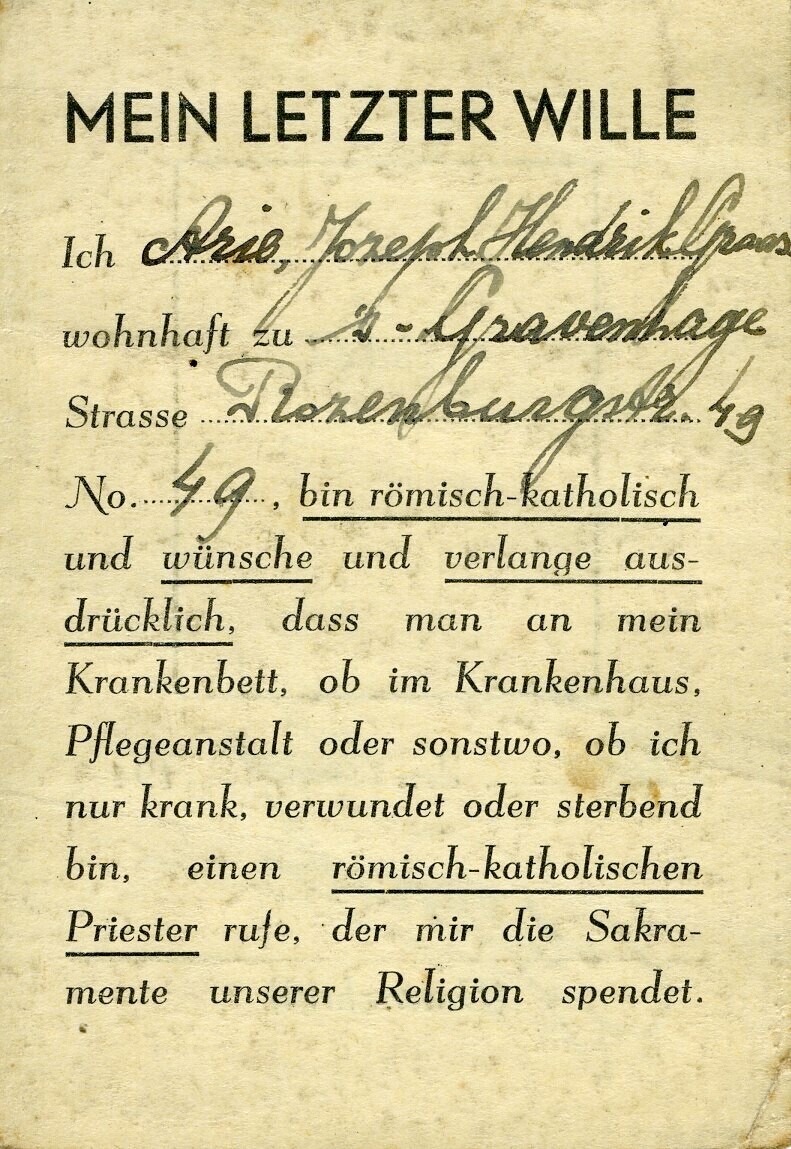 MEIN LETZTER WILLE
Ich Arie, Jozeph Hendrik
wohnhaft zu 's-Gravenhage
Strasse Rozenburgstr. 49
No. 49, bin römisch-katholisch
und wünsche und verlange aus-
drücklich, dass man an mein
Krankenbett, ob im Krankenhaus,
Pflegeanstalt oder sonstwo, ob ich
nur krank, verwundet oder sterbend
bin, einen römisch-katholischen
Priester rufe, der mir die Sakra-
mente unserer Religion spendet.